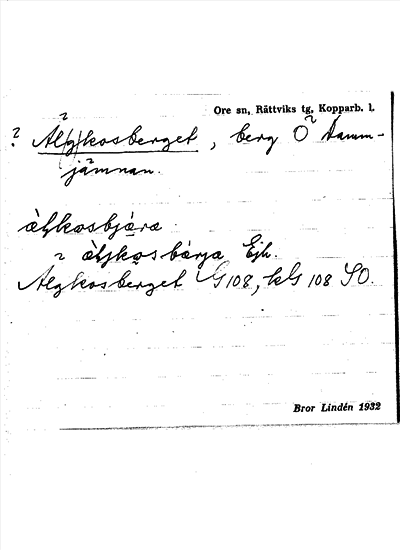 Ore sn, Rättviks tg, Kopparb. l.
? Al(g)kosberget, berg Ö Damm-
jämnan.
àļkosbjæra
~ àļkosbærja Ejh.
Algkosberget G108, kG 108 SO.
Bror Lindén 1932